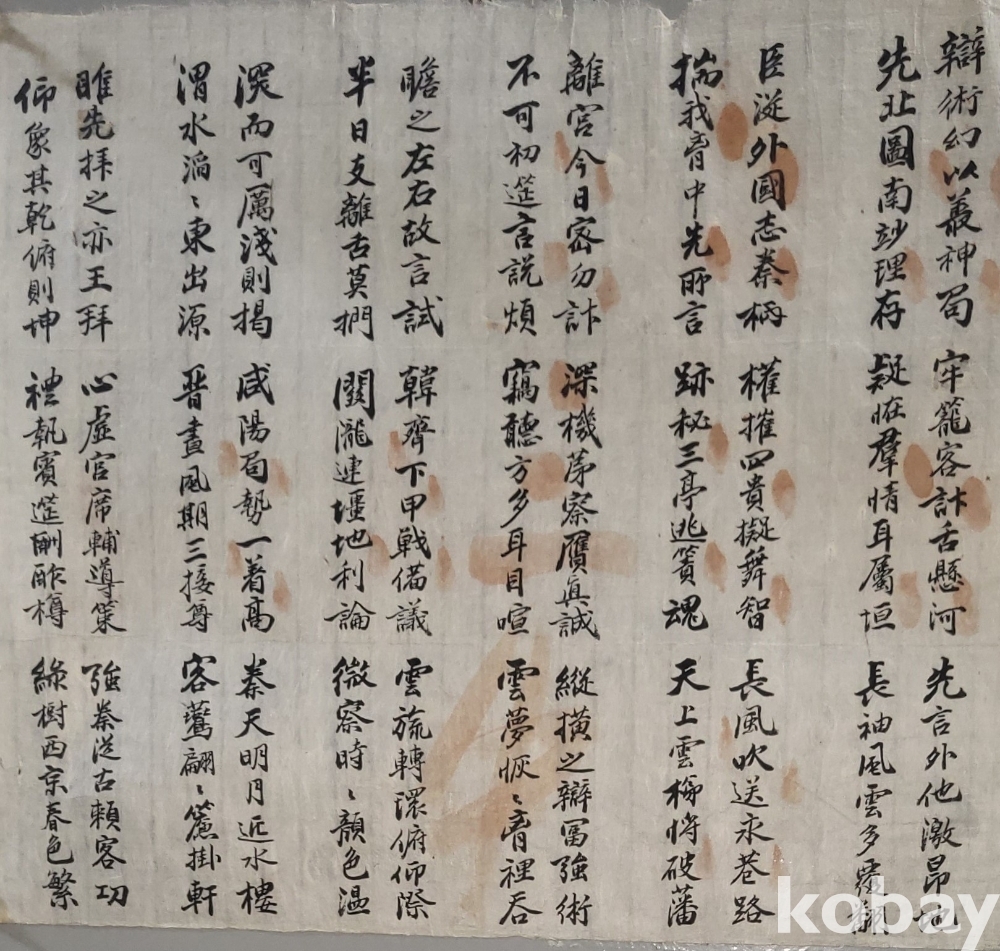 辯術幻以義神局 牢籠客計舌懸河 先言外他激昂地
先北圖南竗理存 疑在羣情耳屬垣 長袖風雲多覆翻
臣從外國志秦柄 權摧四貴擬舞智 長風吹送永巷路
揣我胷中先所言 跡秘三亭逃簀魂 天上雲梯將破藩
離宮今日密勿計 深機第察贋眞誠 縱橫之辯富強術
不可初筵言說煩 竊聽方多耳目喧 雲夢恢〻胷裡吞
瞻之左右故言試 韓齊下甲戰備議 雲旒轉環俯仰際
半日支離舌莫捫 關隴連壃地利論 微察時〻顏色溫
深而可厲淺則揭 咸陽局勢一着高 秦天明月近水樓
渭水滔〻東出源 晋晝風期三接尊 容鷺翩〻簾掛軒
睢先拜之亦王拜 心虛官席輔導策 強秦從古賴客功
仰象其乾俯則坤 禮執賓筵酬酢樽 綠樹西京春色繁
kobay